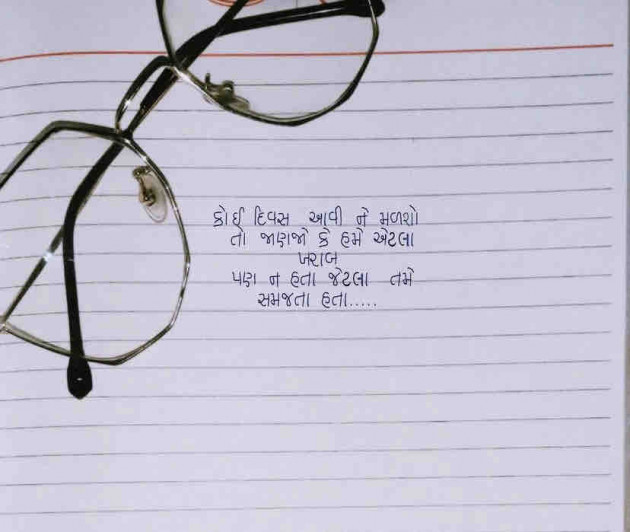 કોઈ દિવસ આવી ને મળશો
તો જાણજો કે હમે એટલા
ખરાબ
પણ ન હતા જેટલા તમે
સમજતા હતા.....